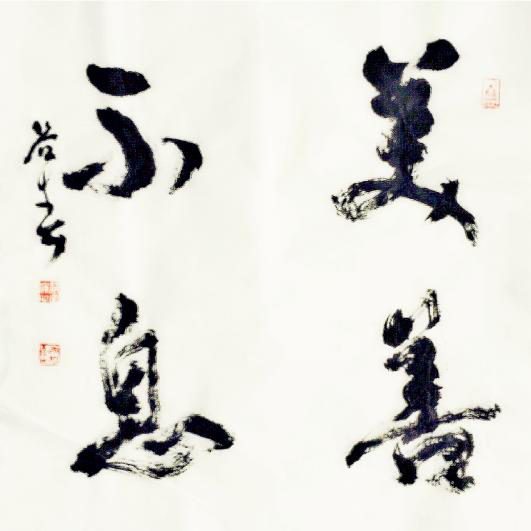 美善
不息